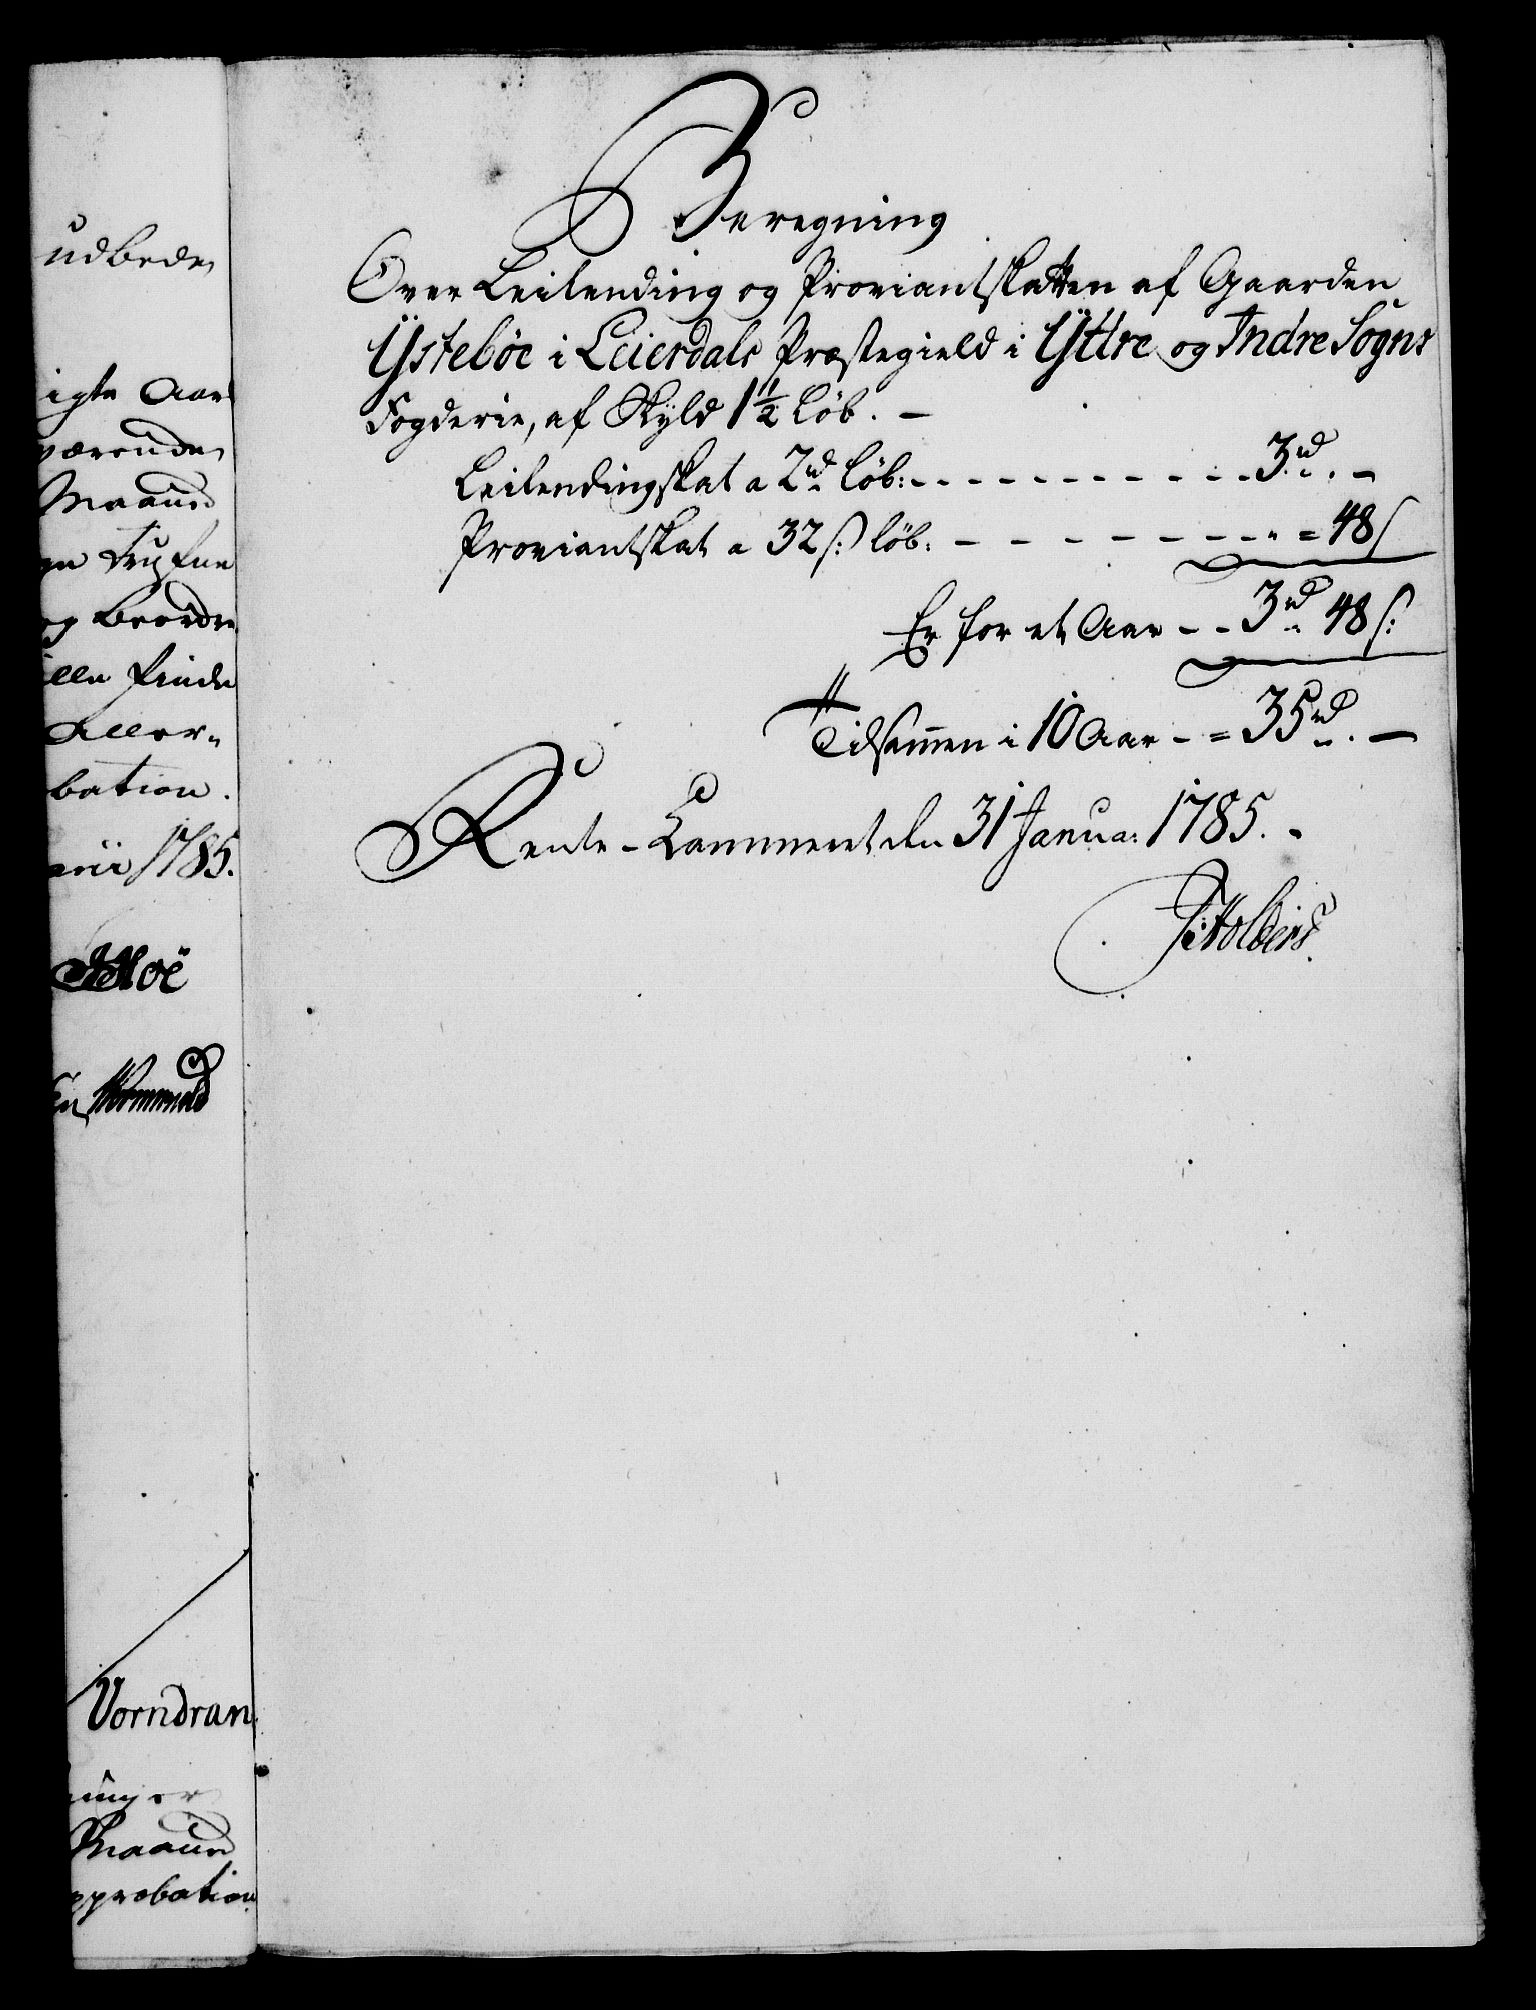 udbede
igte Aar
værende
Maaned
og beordre
ille finde
Aller-
bation.
arii 1785.
Moë
Vorndran
Maaned
pprobation
Beregning
Over Leilending og Proviantskatten af Gaarden
Ystebøe i Leierdals Præstegield i Yttre og Indre Sogns
Fogderie, af Skyld 1½ Løb. –
Leilendingskat a 2 rd Løb: - - - - - - - - - - - 3 rd. –
Proviantskat a 32 s: Løb: - - - - - - - - - = 48 s
Er for et Aar - - 3 rd 48 s:
Tilsamen i 10 Aar - = 35 rd. –
Rente-Cammeret den 31 Janua: 1785. -